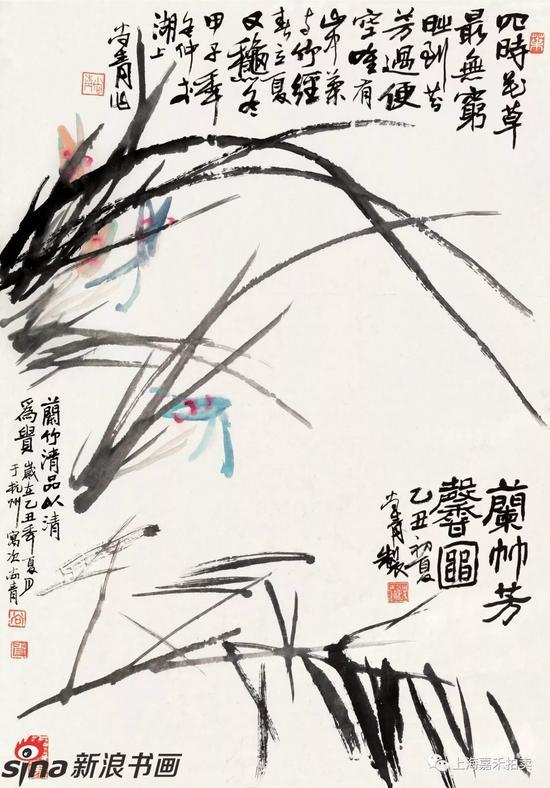 四時花草
最無窮
時到芬
芳過便
空唯有
山中蘭
與竹經
春立夏
又龝冬
甲子年
冬仲於
湖上
尚青作
蘭竹芳
馨圖
乙丑初夏
尚青製
蘭竹清品以清
為貴 歲在乙丑年夏月
于杭州寫次尚青
sina新浪书画
上海嘉禾拍卖